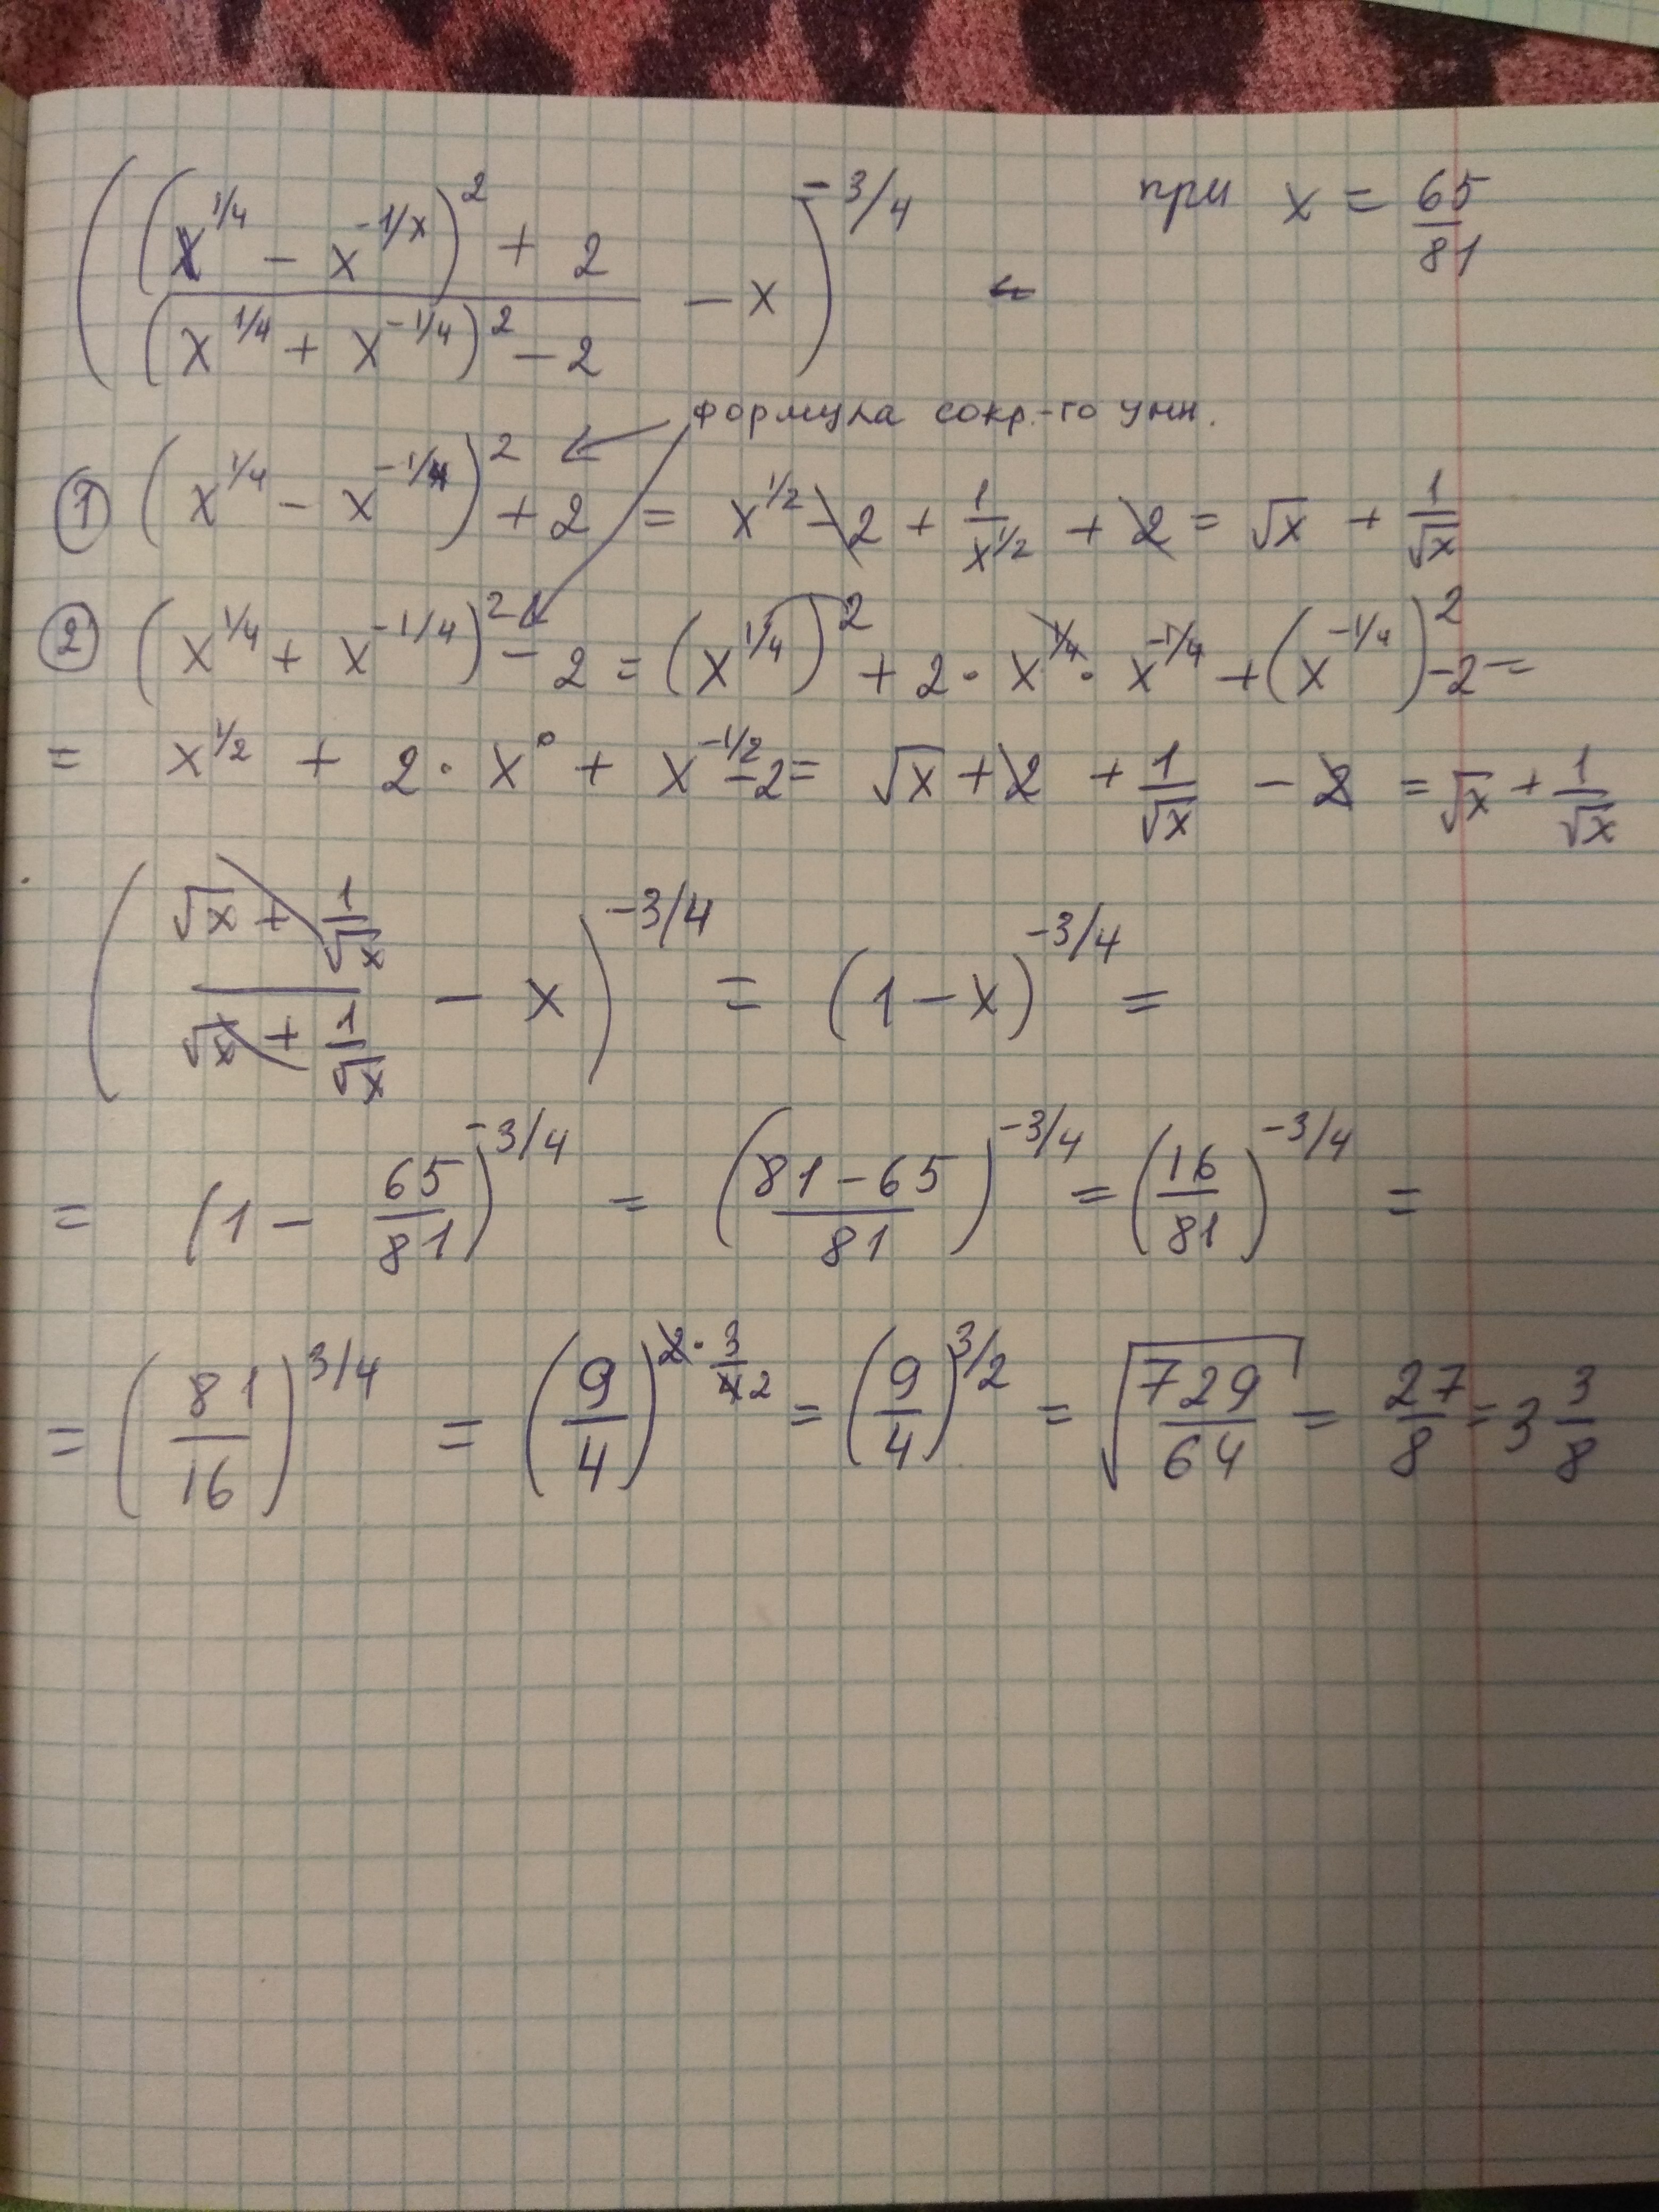 ((x^{1/4} - x^{-1/x})^2 + 2) / ((x^{1/4} + x^{-1/4})^2 - 2) - x)^{-3/4} при x = 65/81
формула сокр.-го умн.
① (x^{1/4} - x^{-1/4})^2 + 2 = x^{1/2} - 2 + 1/x^{1/2} + 2 = √x + 1/√x
② (x^{1/4} + x^{-1/4})^2 - 2 = (x^{1/4})^2 + 2 · x^{1/4} · x^{-1/4} + (x^{-1/4})^2 - 2 =
= x^{1/2} + 2 · x^0 + x^{-1/2} - 2 = √x + 2 + 1/√x - 2 = √x + 1/√x
((√x + 1/√x) / (√x + 1/√x) - x)^{-3/4} = (1 - x)^{-3/4} =
= (1 - 65/81)^{-3/4} = ((81 - 65)/81)^{-3/4} = (16/81)^{-3/4} =
= (81/16)^{3/4} = (9/4)^{2 · 3/4 2} = (9/4)^{3/2} = √(729/64) = 27/8 = 3 3/8